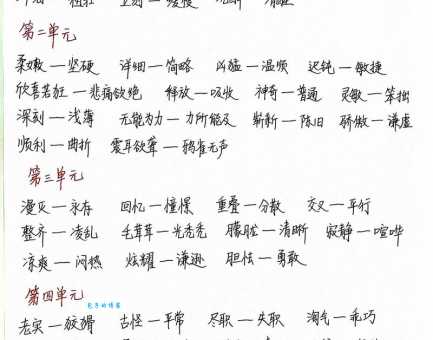 第二单元
柔嫩—坚硬 详细—简略 凶猛—温顺 迟钝—敏捷
欣喜若狂—悲痛欲绝 释放—吸收 神奇—普通 灵敏—笨拙
深刻—浅薄 无能为力—力所能及 崭新—陈旧 骄傲—谦虚
顺利—曲折 震耳欲聋—鸦雀无声
第三单元
漫灭—永存 回忆—憧憬 重叠—分散 交叉—平行
整齐—凌乱 毛茸茸—光秃秃 朦胧—清晰 寂静—喧哗
凉爽—闷热 炫耀—谦逊 胆怯—勇敢
第四单元
老实—狡猾 古怪—平常 尽职—失职 淘气—乖巧